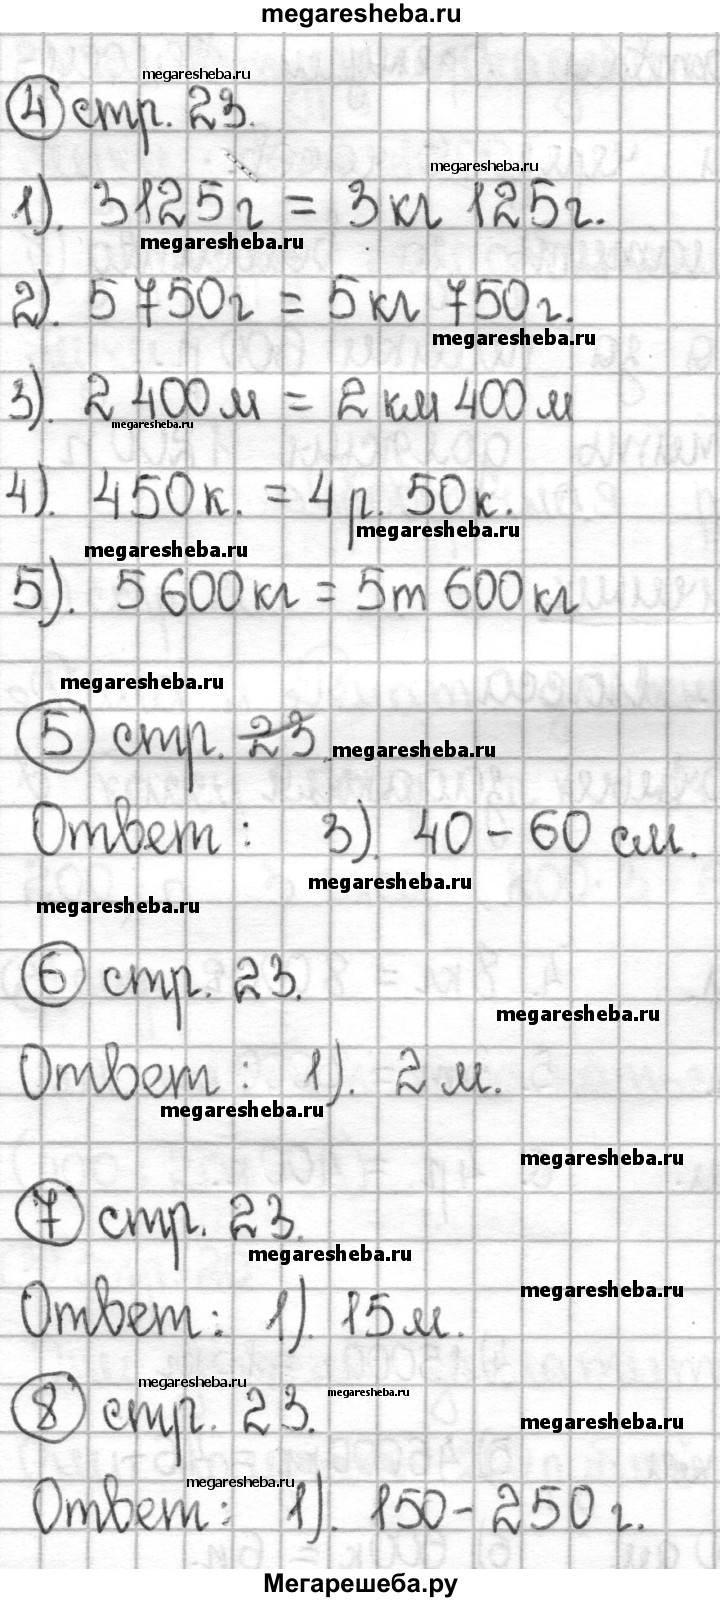 megaresheba.ru
megaresheba.ru
④ стр. 23.
megaresheba.ru
1). 3125г = 3кг 125г.
megaresheba.ru
2). 5750г = 5кг 750г.
megaresheba.ru
3). 2 400м = 2км 400м
megaresheba.ru
4). 450к. = 4р. 50к.
megaresheba.ru
megaresheba.ru
5). 5 600кг = 5т 600кг
megaresheba.ru
⑤ стр. 23.
megaresheba.ru
Ответ: 3). 40 - 60 см.
megaresheba.ru
megaresheba.ru
⑥ стр. 23.
megaresheba.ru
Ответ: 1). 2м.
megaresheba.ru
megaresheba.ru
⑦ стр. 23.
megaresheba.ru
megaresheba.ru
Ответ: 1). 15м.
megaresheba.ru
megaresheba.ru
⑧ стр. 23.
megaresheba.ru
megaresheba.ru
Ответ: 1). 150- 250г.
Мегарешеба.ру